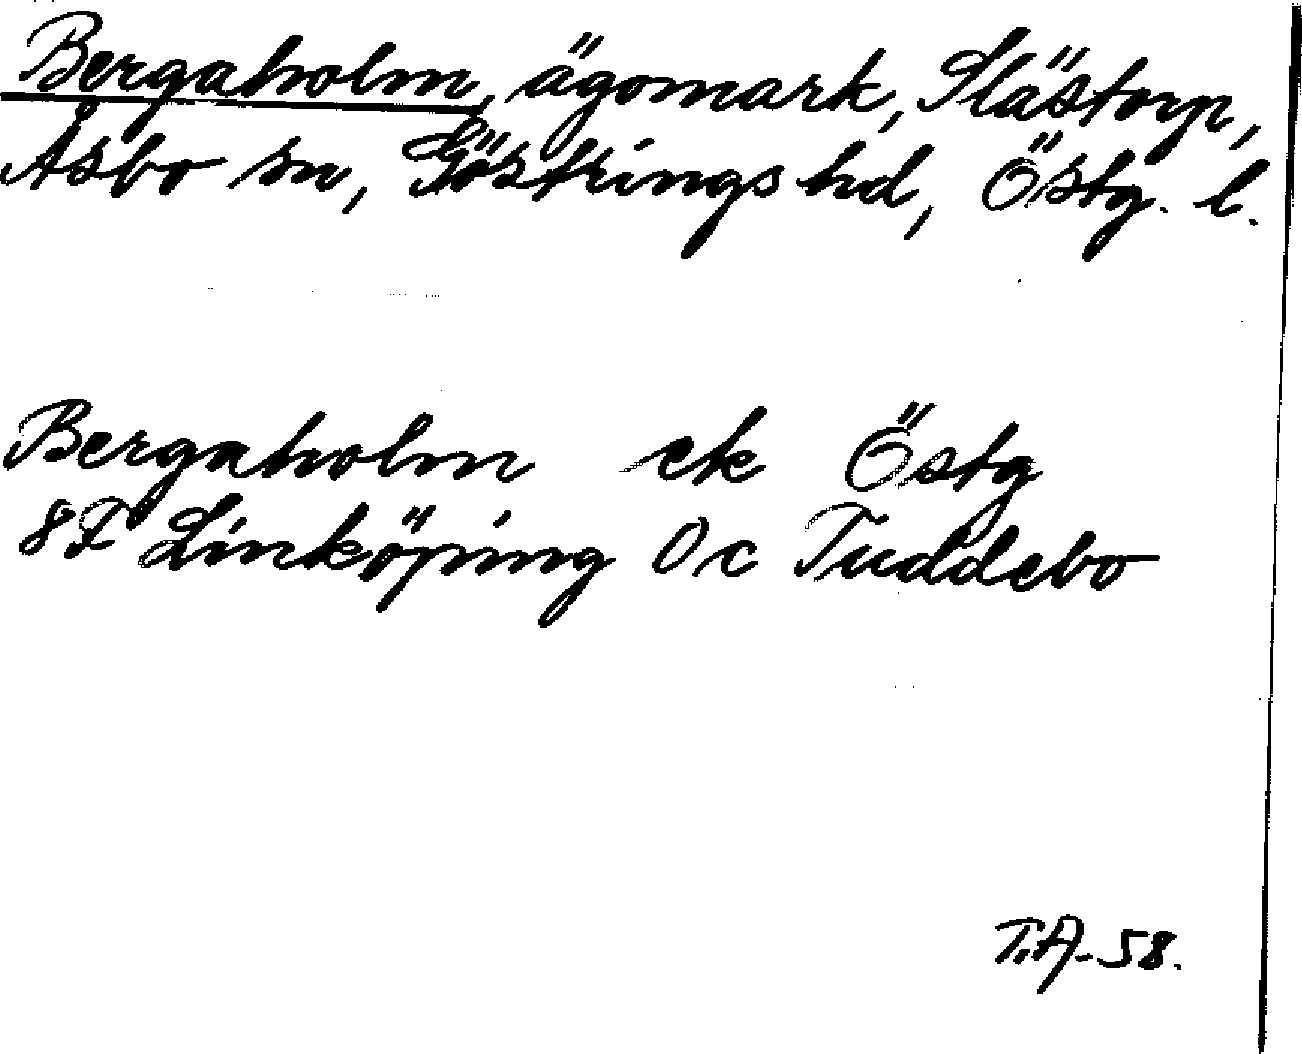 Bergaholm, ägomark, Slästorp,
Åsbo sn, Göstrings hd, Östg. l.
Bergaholm ek Östg
8F Linköping 0c Tuddebo
T.A-58.